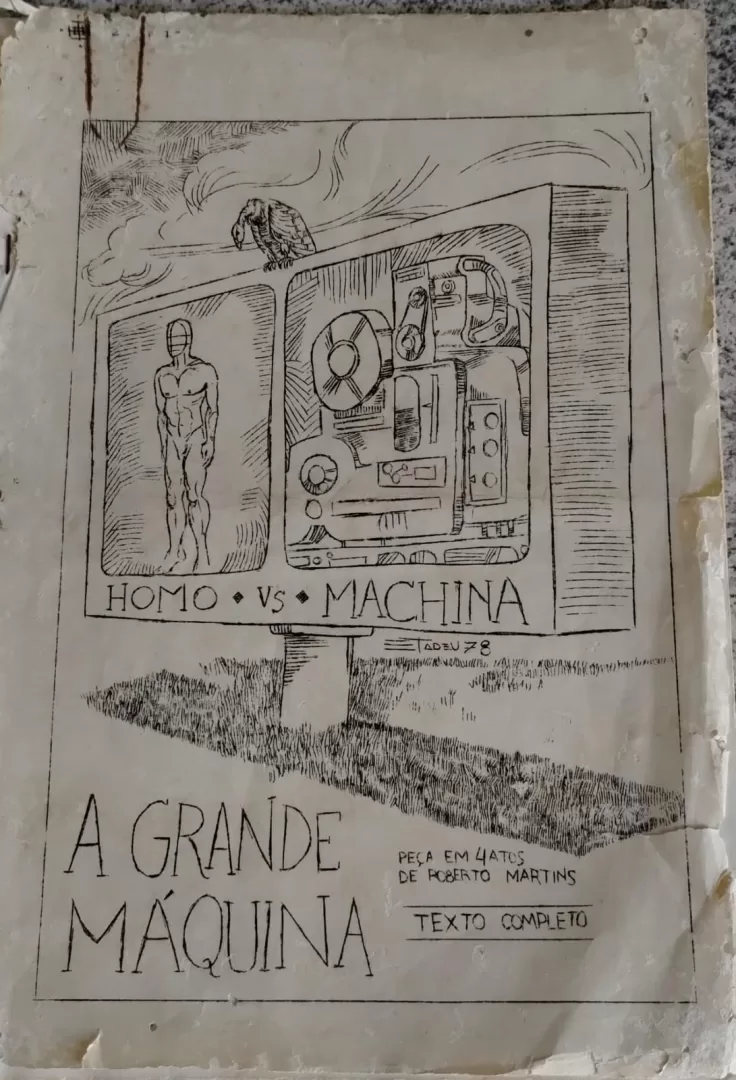 HOMO • VS • MACHINA
TADEU 78
A GRANDE
MÁQUINA
PEÇA EM 4 ATOS
DE ROBERTO MARTINS
TEXTO COMPLETO